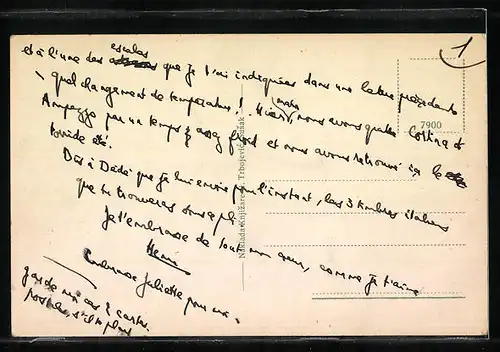 escales
et à l'une des que je t'ai indiquées dans une lettre précédente
quel changement de température ! Hier matin, nous avons quitté Cortina d'
Ampezzo par un temps assez froid et nous avons retrouvé ici le
torride été !
Dis à Dédé que je lui envoie pour l'instant, les 3 timbres italiens
que tu trouveras sous pli.
Je t'embrasse de tout mon cœur, comme je t'aime
Henri
Embrasse Juliette pour moi.
garde mes cartes
possible, s'il te plaît
1
7900
Naklada Knjižare Trbojević, Sušak